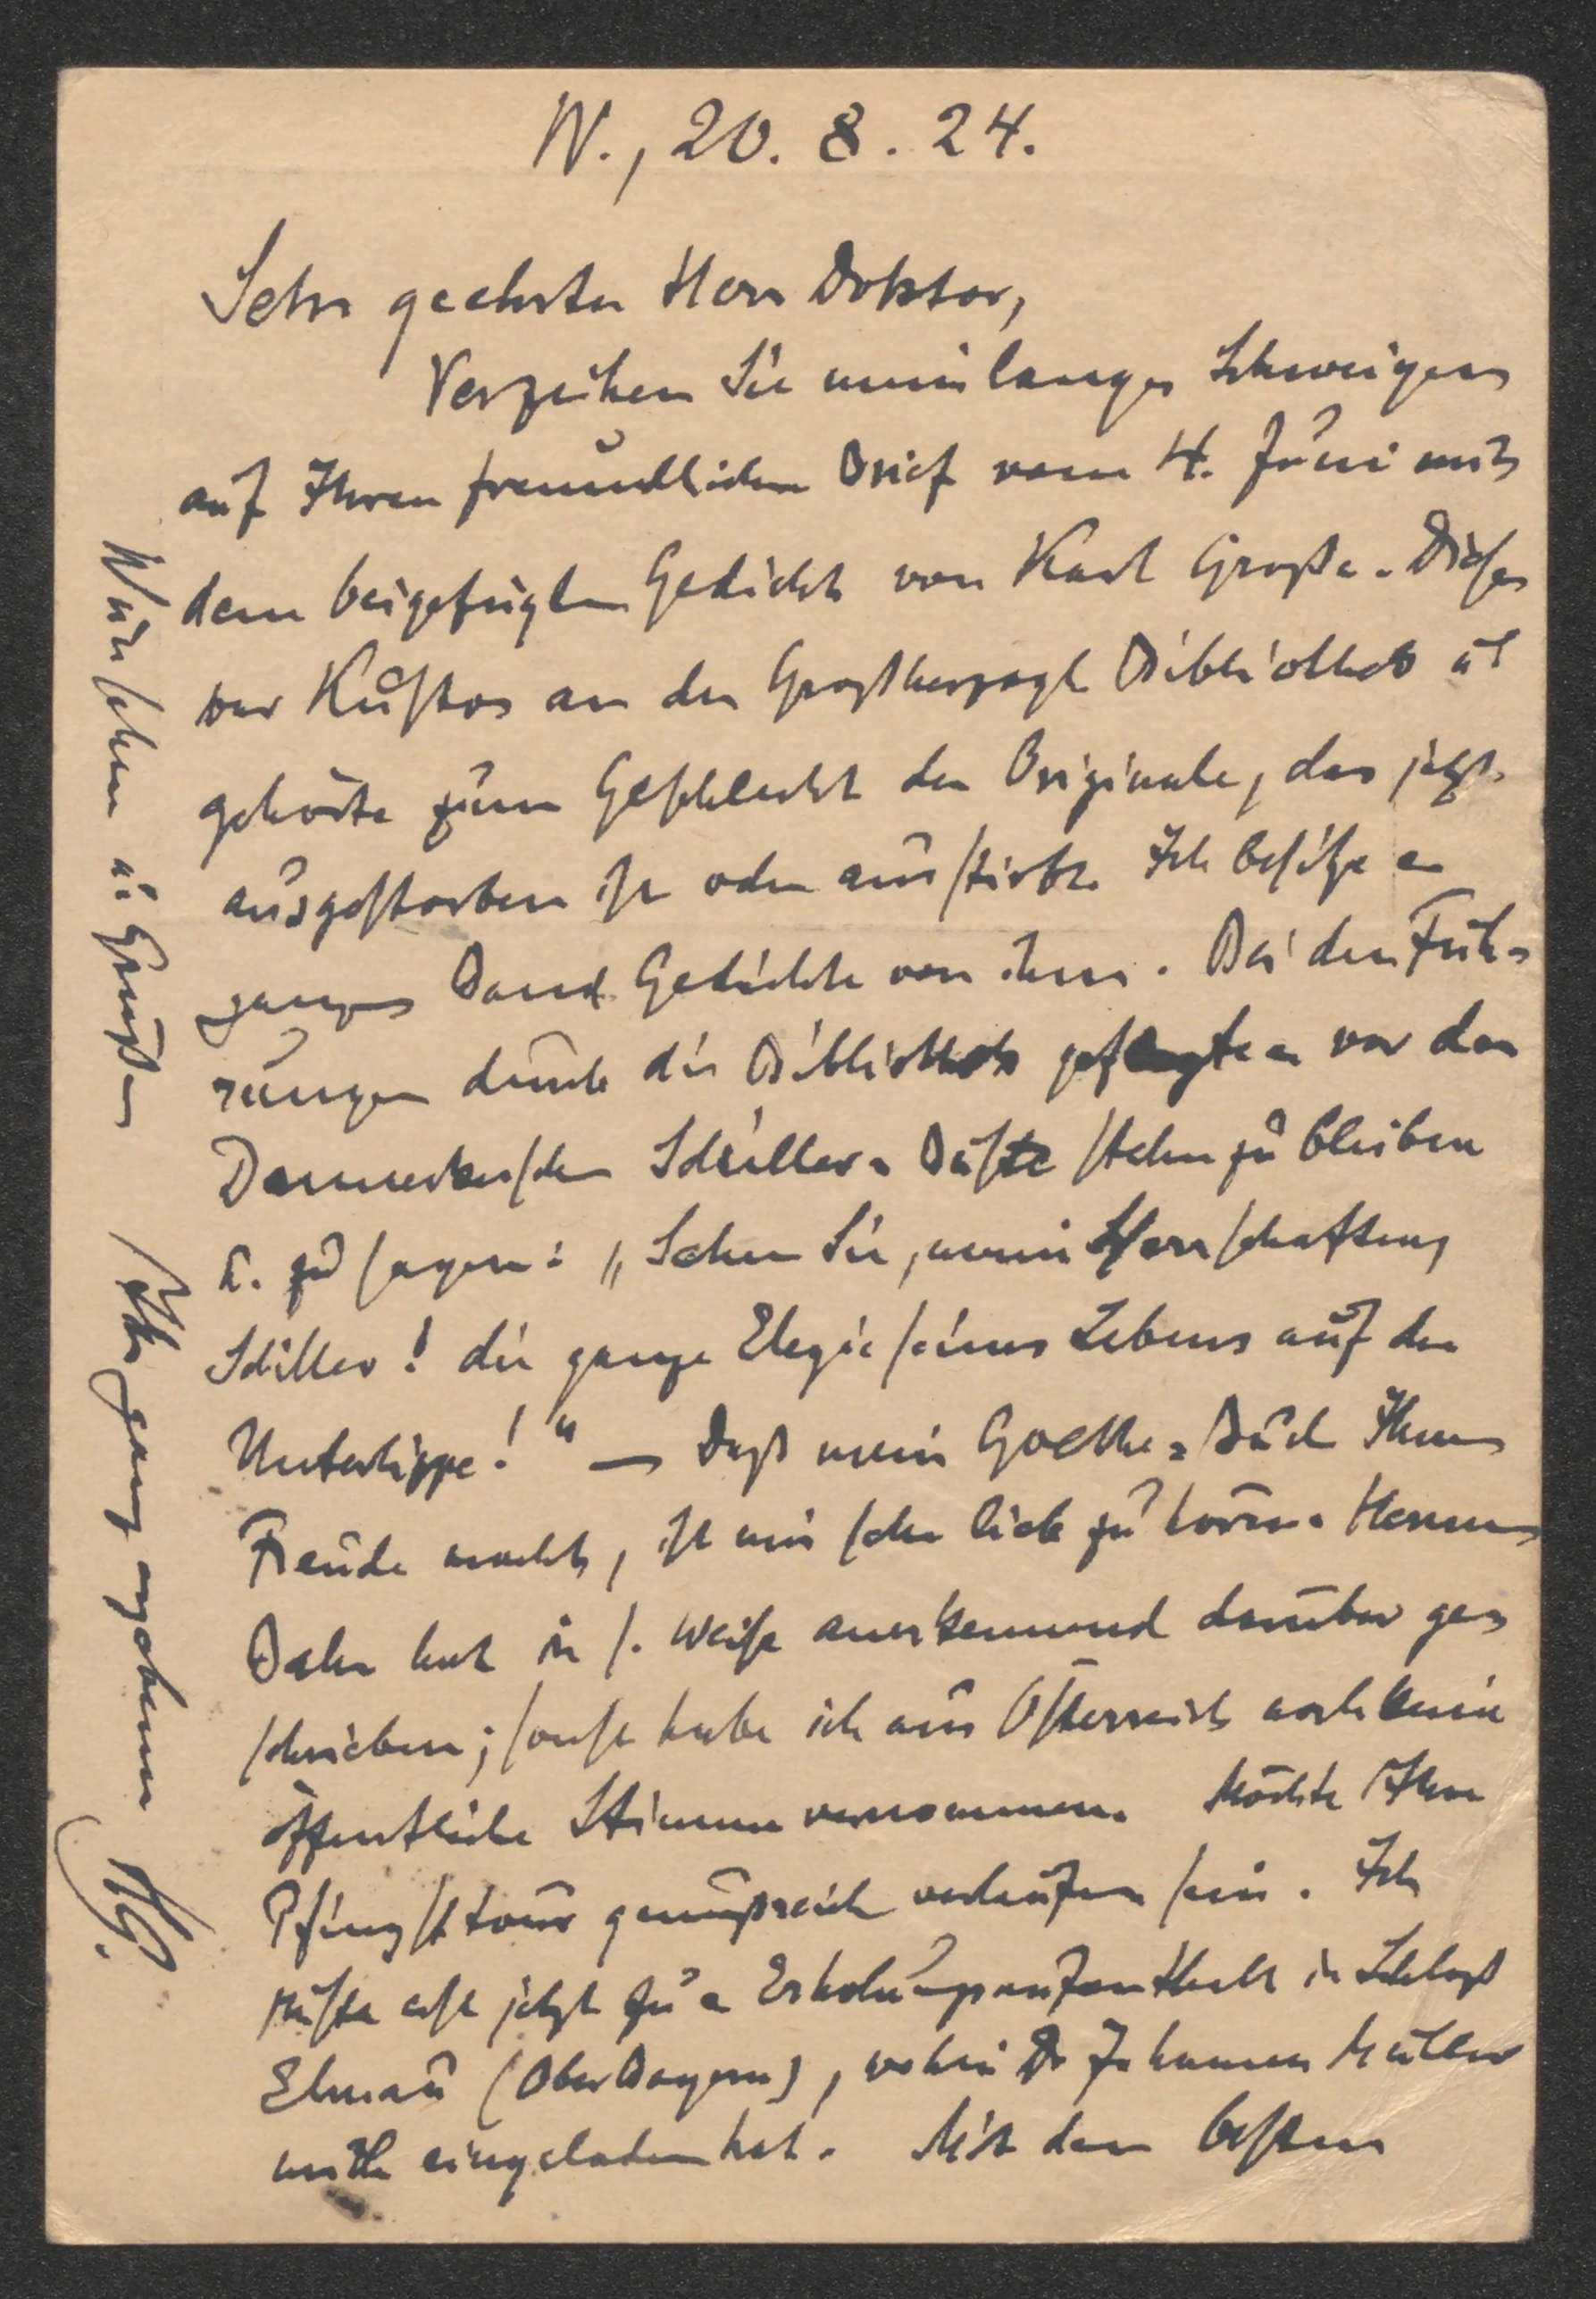 W., 20. 8. 24.
Sehr geehrter Herr Doktor,
Verzeihen Sie mein langes Schweigen
auf Ihren freundlichen Brief vom 4. Juni mit
dem beigefügten Gedicht von Karl Große. Dieser
war Kustos an der Großherzogl Bibliothek u.
gehörte zum Geschlecht der Originale, das jetzt
ausgestorben ist oder ausstirbt. Ich besitze e
ganzes Band Gedichte von ihm. Bei den Füh-
rungen durch die Bibliothek pflegte er vor der
Danneckerschen Schiller-Büste stehn zu bleiben
u. zu sagen: „Sehen Sie, meine Herrschaften,
Schiller! die ganze Elegie seines Lebens auf der
Unterlippe!" – Daß mein Goethe-Buch Ihnen
Freude macht, ist mir sehr lieb zu hören. Hermann
Bahr hat in s. Weise anerkennend darüber ge-
schrieben; sonst habe ich aus Österreich noch keine
öffentliche Stimme vernommen. Möchte Ihre
Pfingsttour genußreich verlaufen sein. Ich
rüste erst jetzt zu e Erholungsaufenthalt in Schloß
Elmau (OberBayern), wohin Dr Johannes Müller
mich eingeladen hat. Mit den besten
Wünschen u. Grüßen
Ihr ganz ergebener